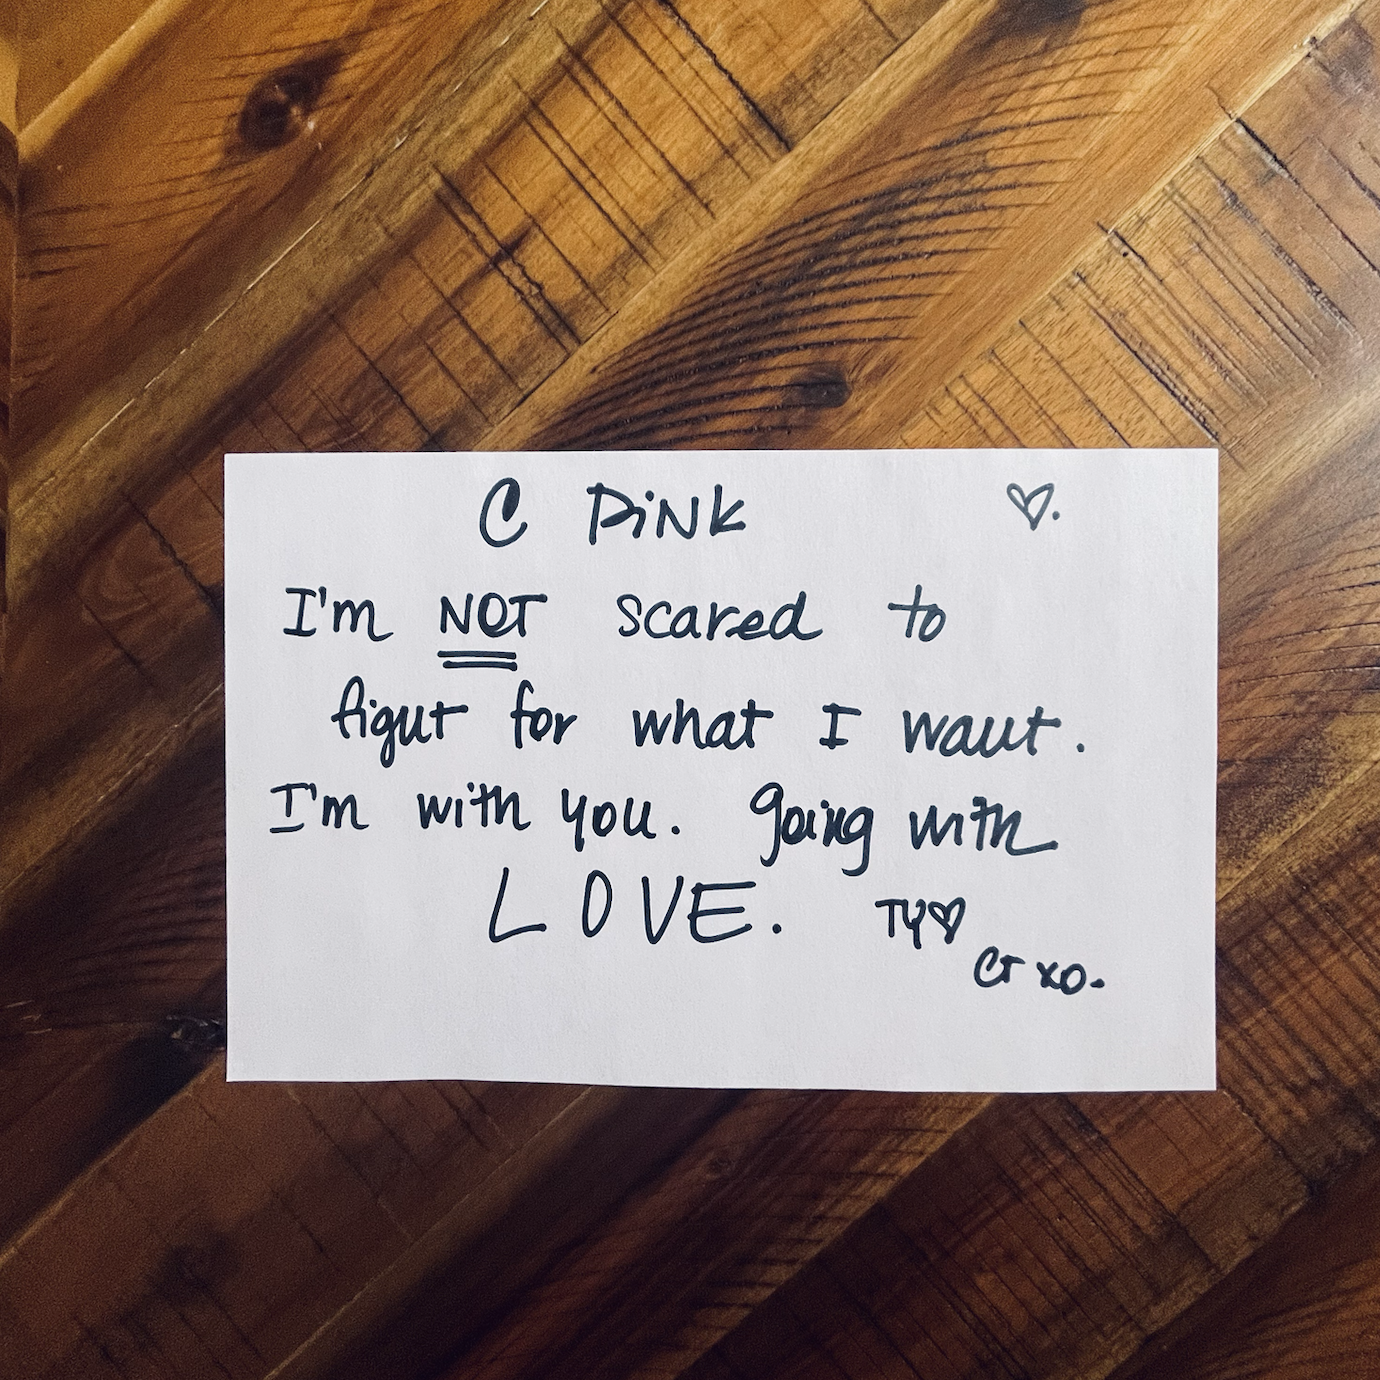 C PiNK ♡.
I'm NOT scared to
fight for what I want.
I'm with you. Going with
LOVE. TY♡
CT xo.